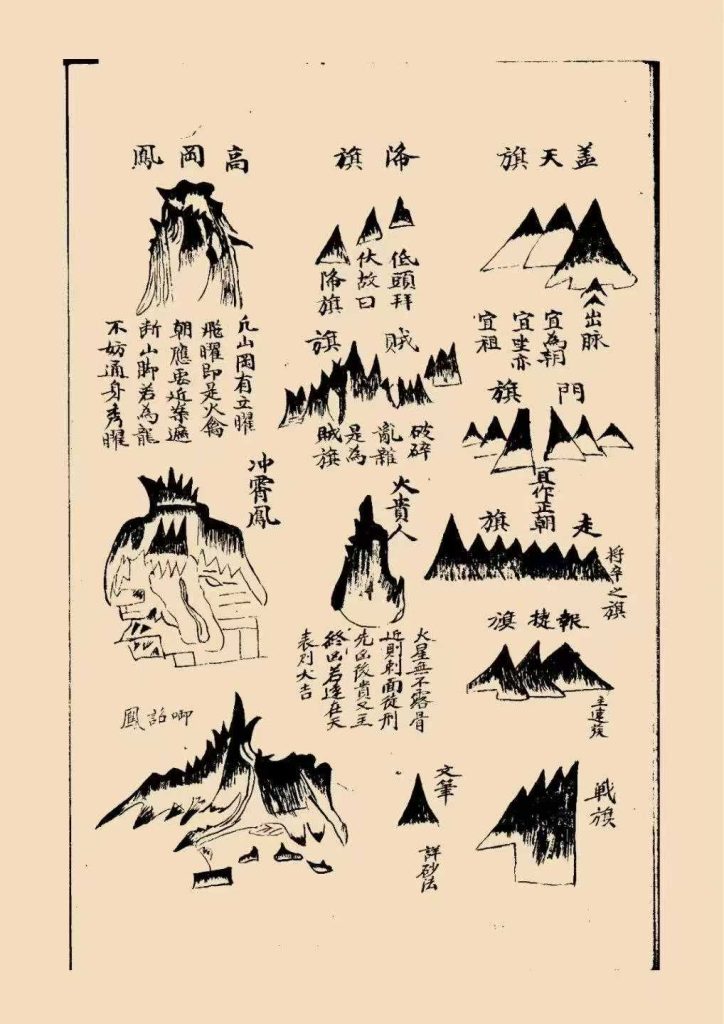 蓋天旗
出脉
宜為朝
宜坐亦
宜祖
門旗
宜作正朝
走旗
将卒之旗
報捷旗
主連發
戦旗
降旗
低頭拜
伏故曰
降旗
賊旗
破碎
亂雜
是為
賊旗
火貴人
火星無不露骨
近則刺面徒刑
先凶後貴又主
終凶若逺在天
表别大吉
文筆
詳砂法
高岡鳳
凢山岡有立曜
飛曜即是火禽
朝應要近案邊
断山脚若為龍
不妨通身秀曜
冲霄鳳
啣詔鳳